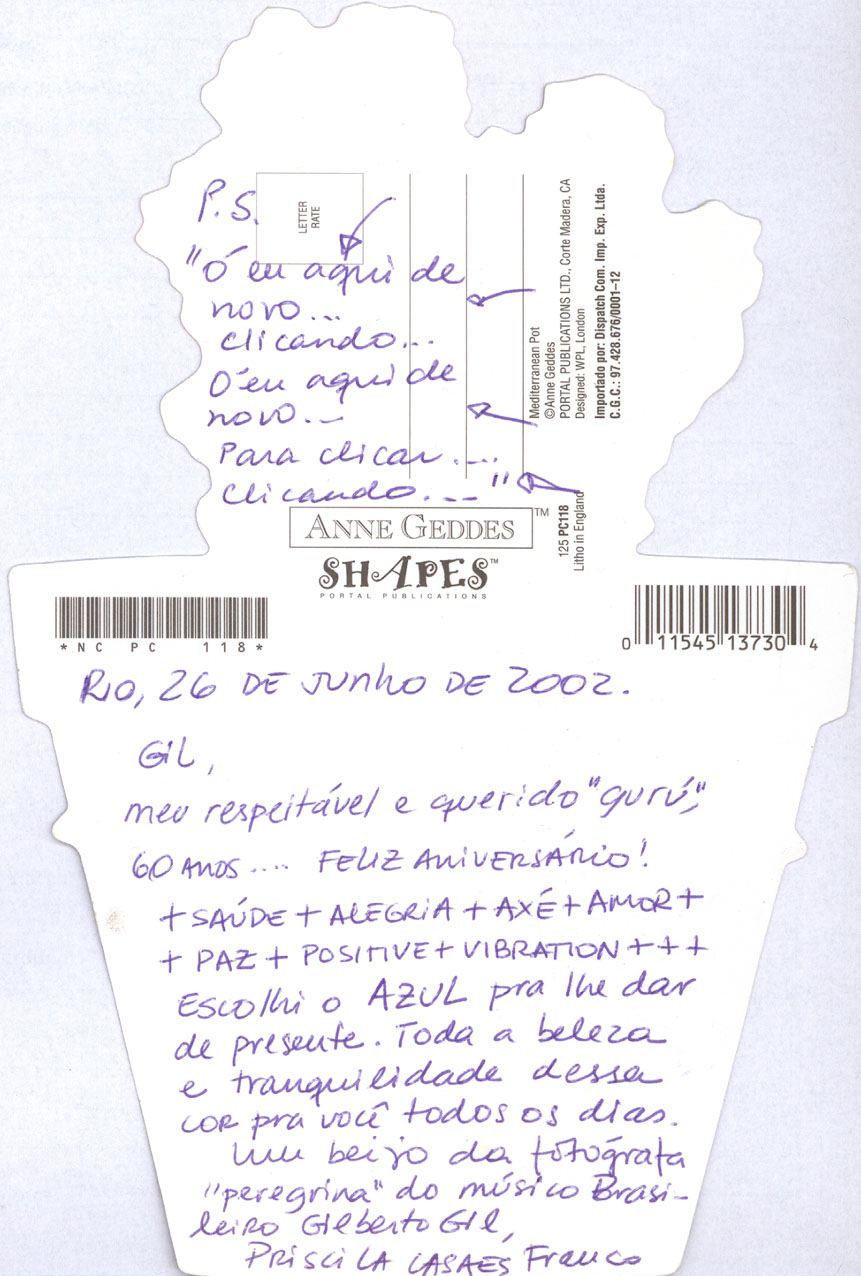 P.S.
LETTER
RATE
"Ó eu aqui de
novo...
clicando...
Ó eu aqui de
novo...
Para clicar....
clicando...."
Mediterranean Pot
©Anne Geddes
PORTAL PUBLICATIONS LTD., Corte Madera, CA
Designed: WPL, London
Importado por: Dispatch Com. Imp. Exp. Ltda.
C.G.C.: 97.428.676/0001-12
125 PC118
Litho in England
ANNE GEDDES™
SHAPES™
PORTAL PUBLICATIONS
*NC PC 118*
0 11545 13730 4
RIO, 26 DE JUNHO DE 2002.
GIL,
meu respeitável e querido "gurú",
60 ANOS.... FELIZ ANIVERSÁRIO!
+ SAÚDE + ALEGRIA + AXÉ + AMOR +
+ PAZ + POSITIVE + VIBRATION + + +
Escolhi o AZUL pra lhe dar
de presente. Toda a beleza
e tranquilidade dessa
cor pra você todos os dias.
Um beijo da fotógrafa
"peregrina" do músico Brasi-
leiro Gilberto Gil,
PRISCILA CASAES Franco